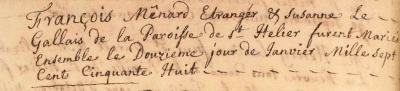 François Mënard Etranger & Susanne Le
Gallais de la Paroisse de St. Helier furent Mariés
Ensemble le Douzieme jour de Janvier Mille Sept
Cent Cinquante Huit